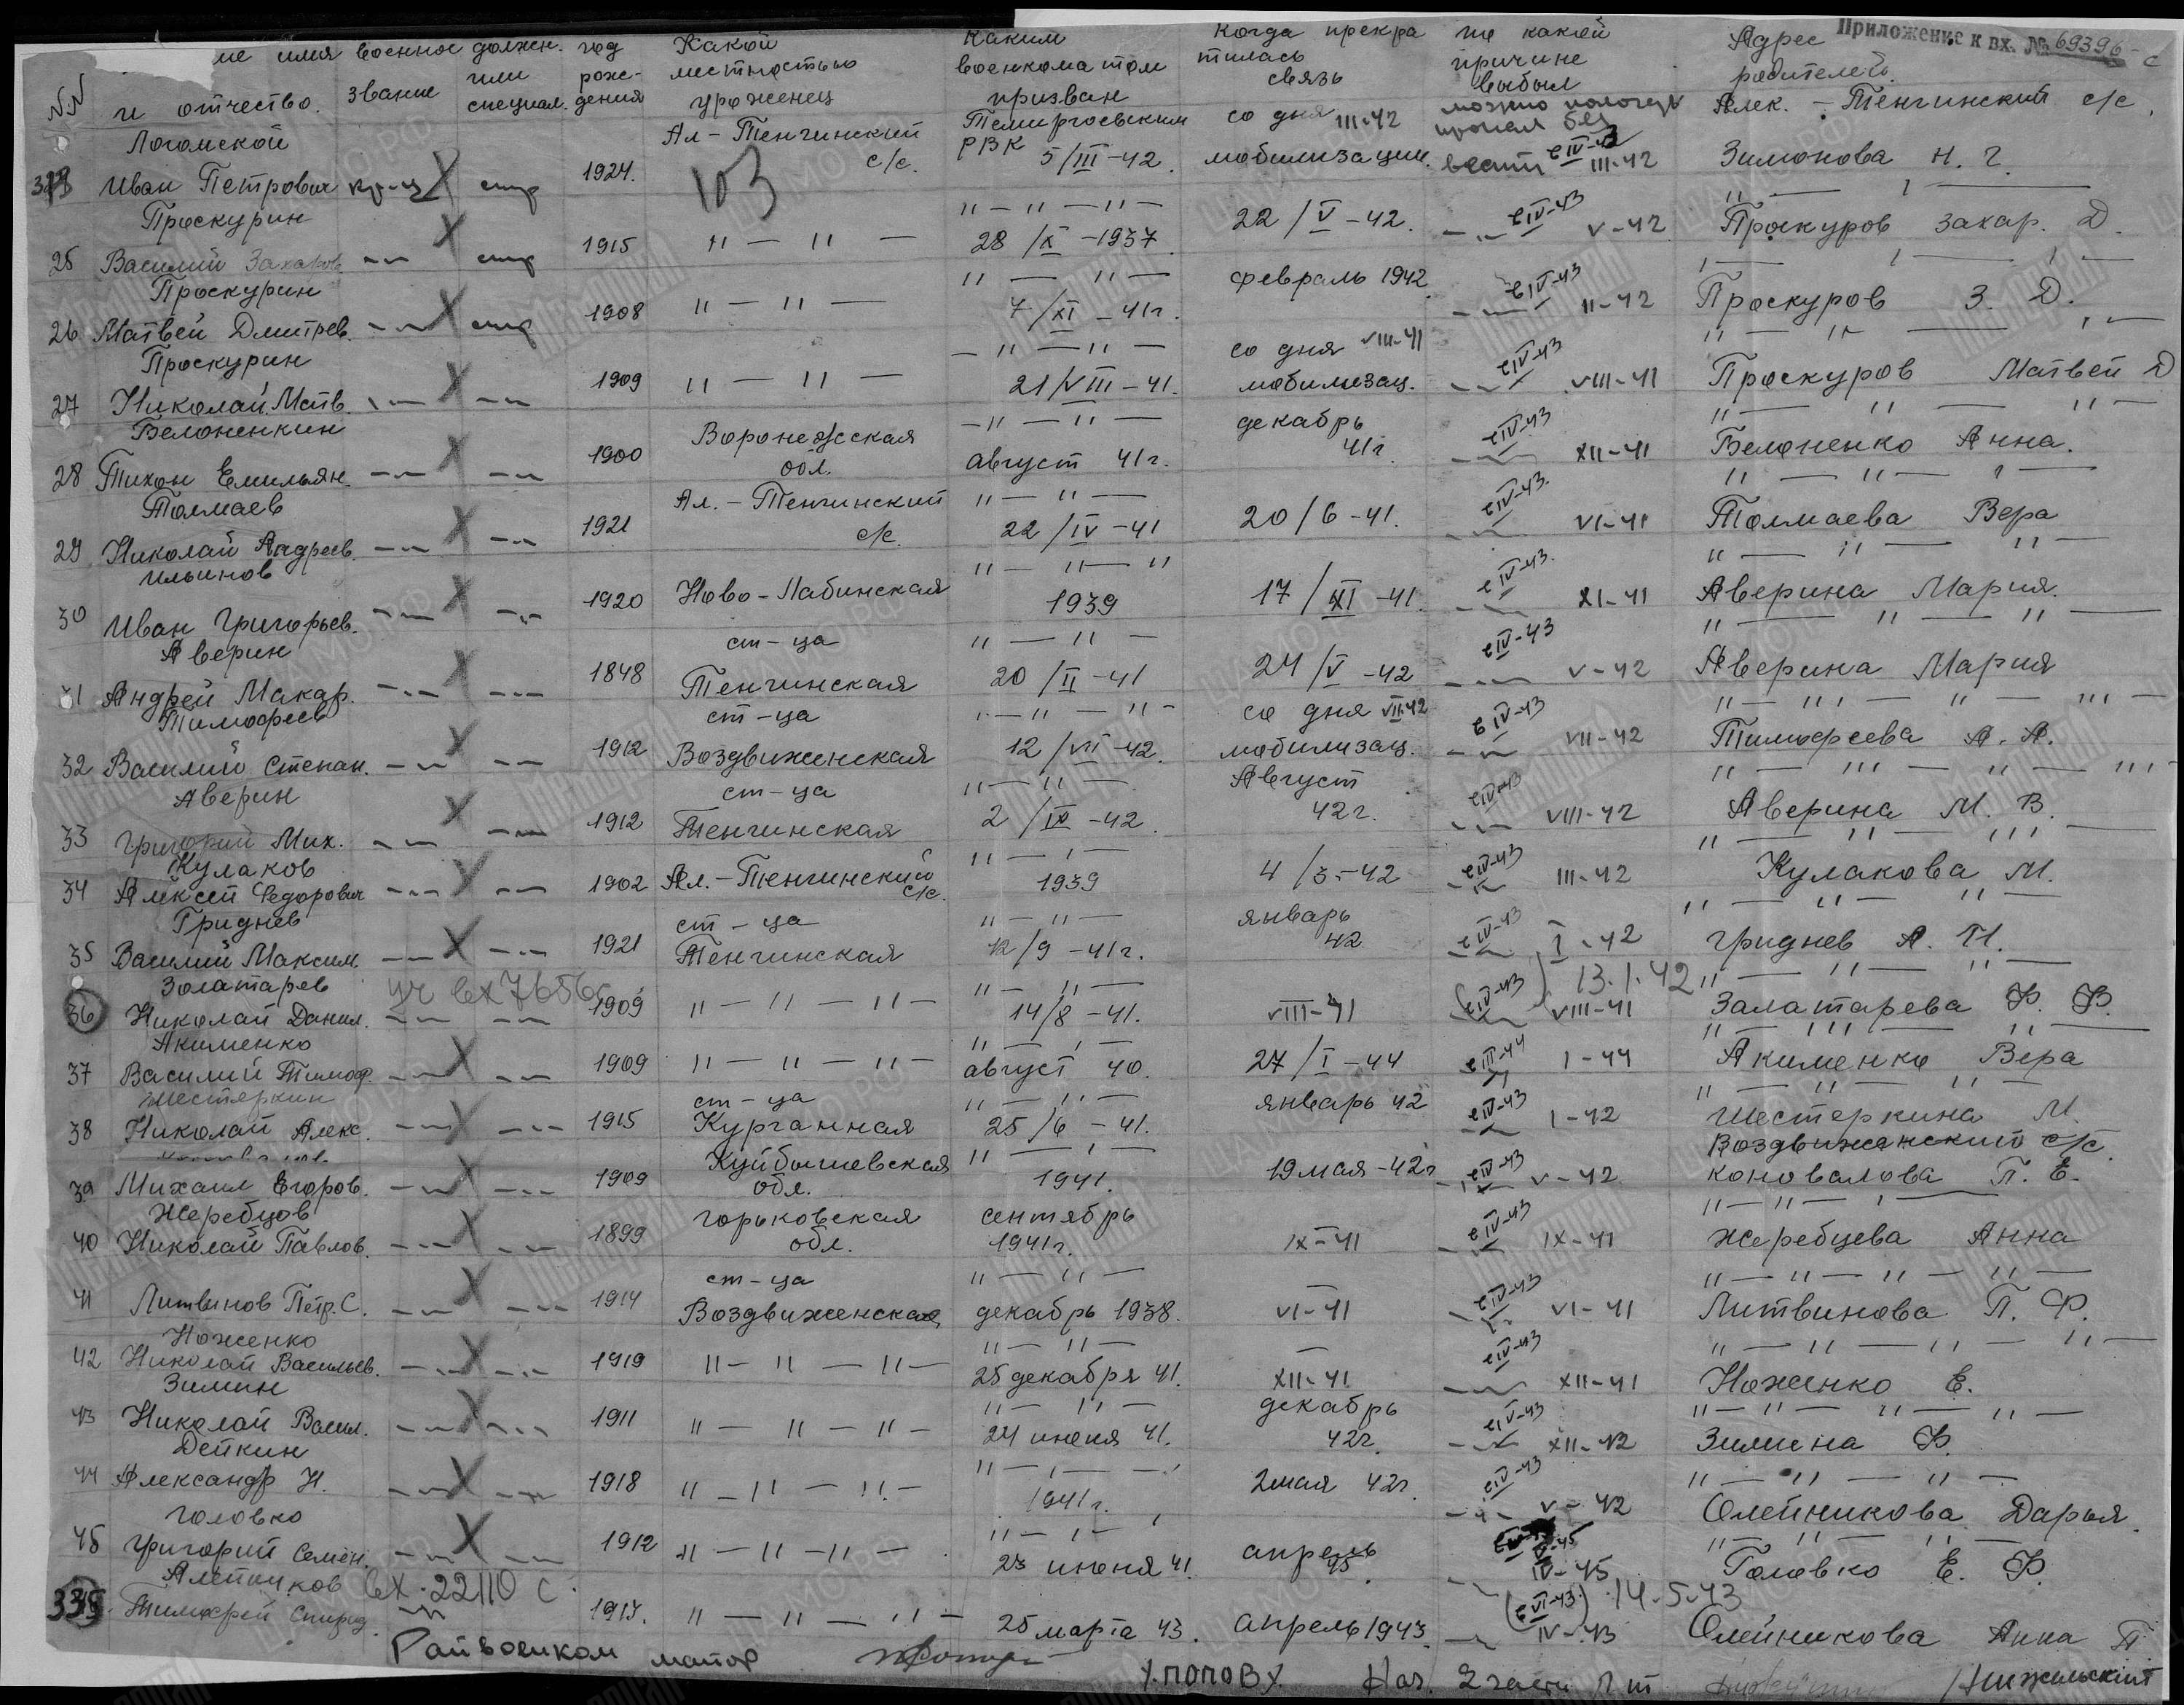 Приложение к вх. № 69396-с
NN ие имя и отчество. военное звание должн. или специал. год рождения Какой местностью уроженец Каким военкоматом призван Когда прекратилась связь по какой причине выбыл Адрес родителей.
Логомской Ал-Тенгинский Темиргоевским со дня III-42 можно пропал без Алек.-Тенгинский с/с,
Иван Петрович кр-ц стр 1924. 103 с/с. РВК 5/III-42. мобилизации. вести III-42 Зимонова Н. Г.
Проскурин " — " — " —
25 Василий Захаров — " — стр 1915 " — " — 28/X-1937 22/V-42. — " — еIV-43 V-42 Проскуров Захар. Д.
Проскурин " — " —
26 Матвей Дмитрев. — " — стр 1908 " — " — 7/XI-41г. февраль 1942 — " — еIV-43 II-42 Проскуров З. Д.
Проскурин — " — " — со дня VIII-41
27 Николай Матв. — " — — " — 1909 " — " — 21/VIII-41. мобилизац. — " — еIV-43 VIII-41 Проскуров Матвей Д
Белоненкин Воронежская — " — " — декабрь
28 Тихон Емильян. — " — — " — 1900 обл. август 41г. 41г. — " — еIV-43 XII-41 Белоненко Анна.
Толмаев Ал.-Тенгинский " — " —
29 Николай Андреев. — " — — " — 1921 с/с. 22/IV-41 20/6-41. — " — еIV-43. VI-41 Толмаева Вера
Ильинов " — " — "
30 Иван Григорьев. — " — — " — 1920 Ново-Лабинская ст-ца 1939 17/XI-41. — " — еIV-43. XI-41 Аверина Мария.
Аверин " — " —
31 Андрей Макар. — " — — " — 1848 Тенгинская ст-ца 20/II-41 24/V-42 — " — еIV-43 V-42 Аверина Мария
Тимофеев " — " — " — со дня VII-42
32 Василий Степан. — " — — " — 1912 Воздвиженская ст-ца 12/VII-42. мобилизац. — " — еIV-43 VII-42 Тимофеева А. А.
Аверин " — " — Август
33 Григорий Мих. — " — — " — 1912 Тенгинская 2/IX-42. 42г. — " — еIV-43 VIII-42 Аверина М. В.
Кулаков " — " —
34 Алексей Федорович — " — — " — 1902 Ал.-Тенгинский с/с. 1939 4/3-42 — " — еIV-43 III-42 Кулакова М.
Гриднев ст-ца " — " — январь
35 Василий Максим. — " — — " — 1921 Тенгинская 12/9-41г. 42 — " — еIV-43 I-42 Гриднев А. П.
Золатарев вх 7656с " — " — 13.1.42
36 Николай Данил. — " — — " — 1909 " — " — " — 14/8-41. VIII-41 (еIV-43) VIII-41 Залатарева Ф. Ф.
Акименко " — " —
37 Василий Тимоф. — " — — " — 1909 " — " — " — август 40. 27/I-44 еIII-44 I-44 Акименко Вера
Шестеркин ст-ца " — " —
38 Николай Алекс. — " — — " — 1915 Курганная 25/6-41. январь 42 еIV-43 I-42 Шестеркина М.
Куйбышевская " — " — Воздвиженский с/с.
39 Михаил Егоров. — " — — " — 1909 обл. 1941. 19 мая-42г — " — еIV-43 V-42 Коновалова П. Е.
Жеребцов Горьковская сентябрь
40 Николай Павлов. — " — — " — 1899 обл. 1941г. IX-41 — " — еIV-43 IX-41 Жеребцева Анна
ст-ца " — " —
41 Литвинов Петр. С. — " — — " — 1914 Воздвиженская декабрь 1938. VI-41 — " — еIV-43 VI-41 Литвинова П. Ф.
Ноженко " — " —
42 Николай Васильев. — " — — " — 1919 " — " — " — 25 декабря 41. XII-41 — " — еIV-43 XII-41 Ноженко Е.
Зимин " — " — декабрь
43 Николай Васил. — " — — " — 1911 " — " — " — 24 июня 41. 42г. — " — еIV-43 XII-42 Зимина Ф.
Дейкин " — " —
44 Александр Н. — " — — " — 1918 " — " — " — 1941г. 2 мая 42г. — " — еIV-43 V-42 Олейникова Дарья.
Головко " — " —
45 Григорий Семен. — " — — " — 1912 " — " — " — 23 июня 41. апрель 45. IV-45 Головко Е. Ф.
вх. 22110 с (еVI-43) 14-5-43
Тимофей Спирид. — " — 1917. " — " — " — 25 марта 43. апрель 1943. — " — IV-43 Олейникова Анна П
Райвоенком майор /ПОПОВ/. Нач. 2 части лт